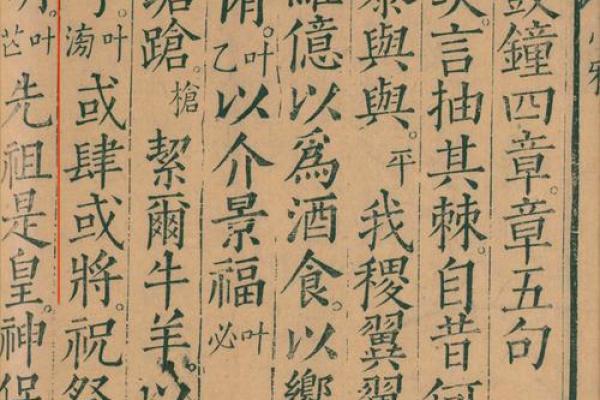 小雅
鼓鐘四章章五句
言抽其棘。自昔何
黍與與。平我稷翼翼
維億以爲酒食。以饗
侑叶乙以介景福叶必
蹌蹌。槍絜爾牛羊。以
叶滂或肆或將。祝祭
叶芒先祖是皇。神保